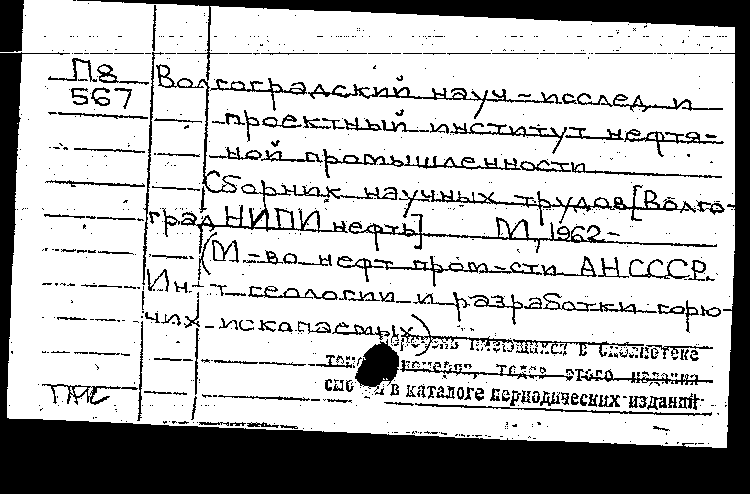 П8
567
Волгоградский науч-исслед и
проектный институт нефтя-
ной промышленности
Сборник научных трудов [Волго-
град НИПИ нефть] М, 1962-
(М-во нефт пром-сти АН СССР.
Ин-т геологии и разработки горю-
чих ископаемых)
Перечень имеющихся в библиотеке
томов, номеров, годов этого издания
смотри в каталоге периодических изданий